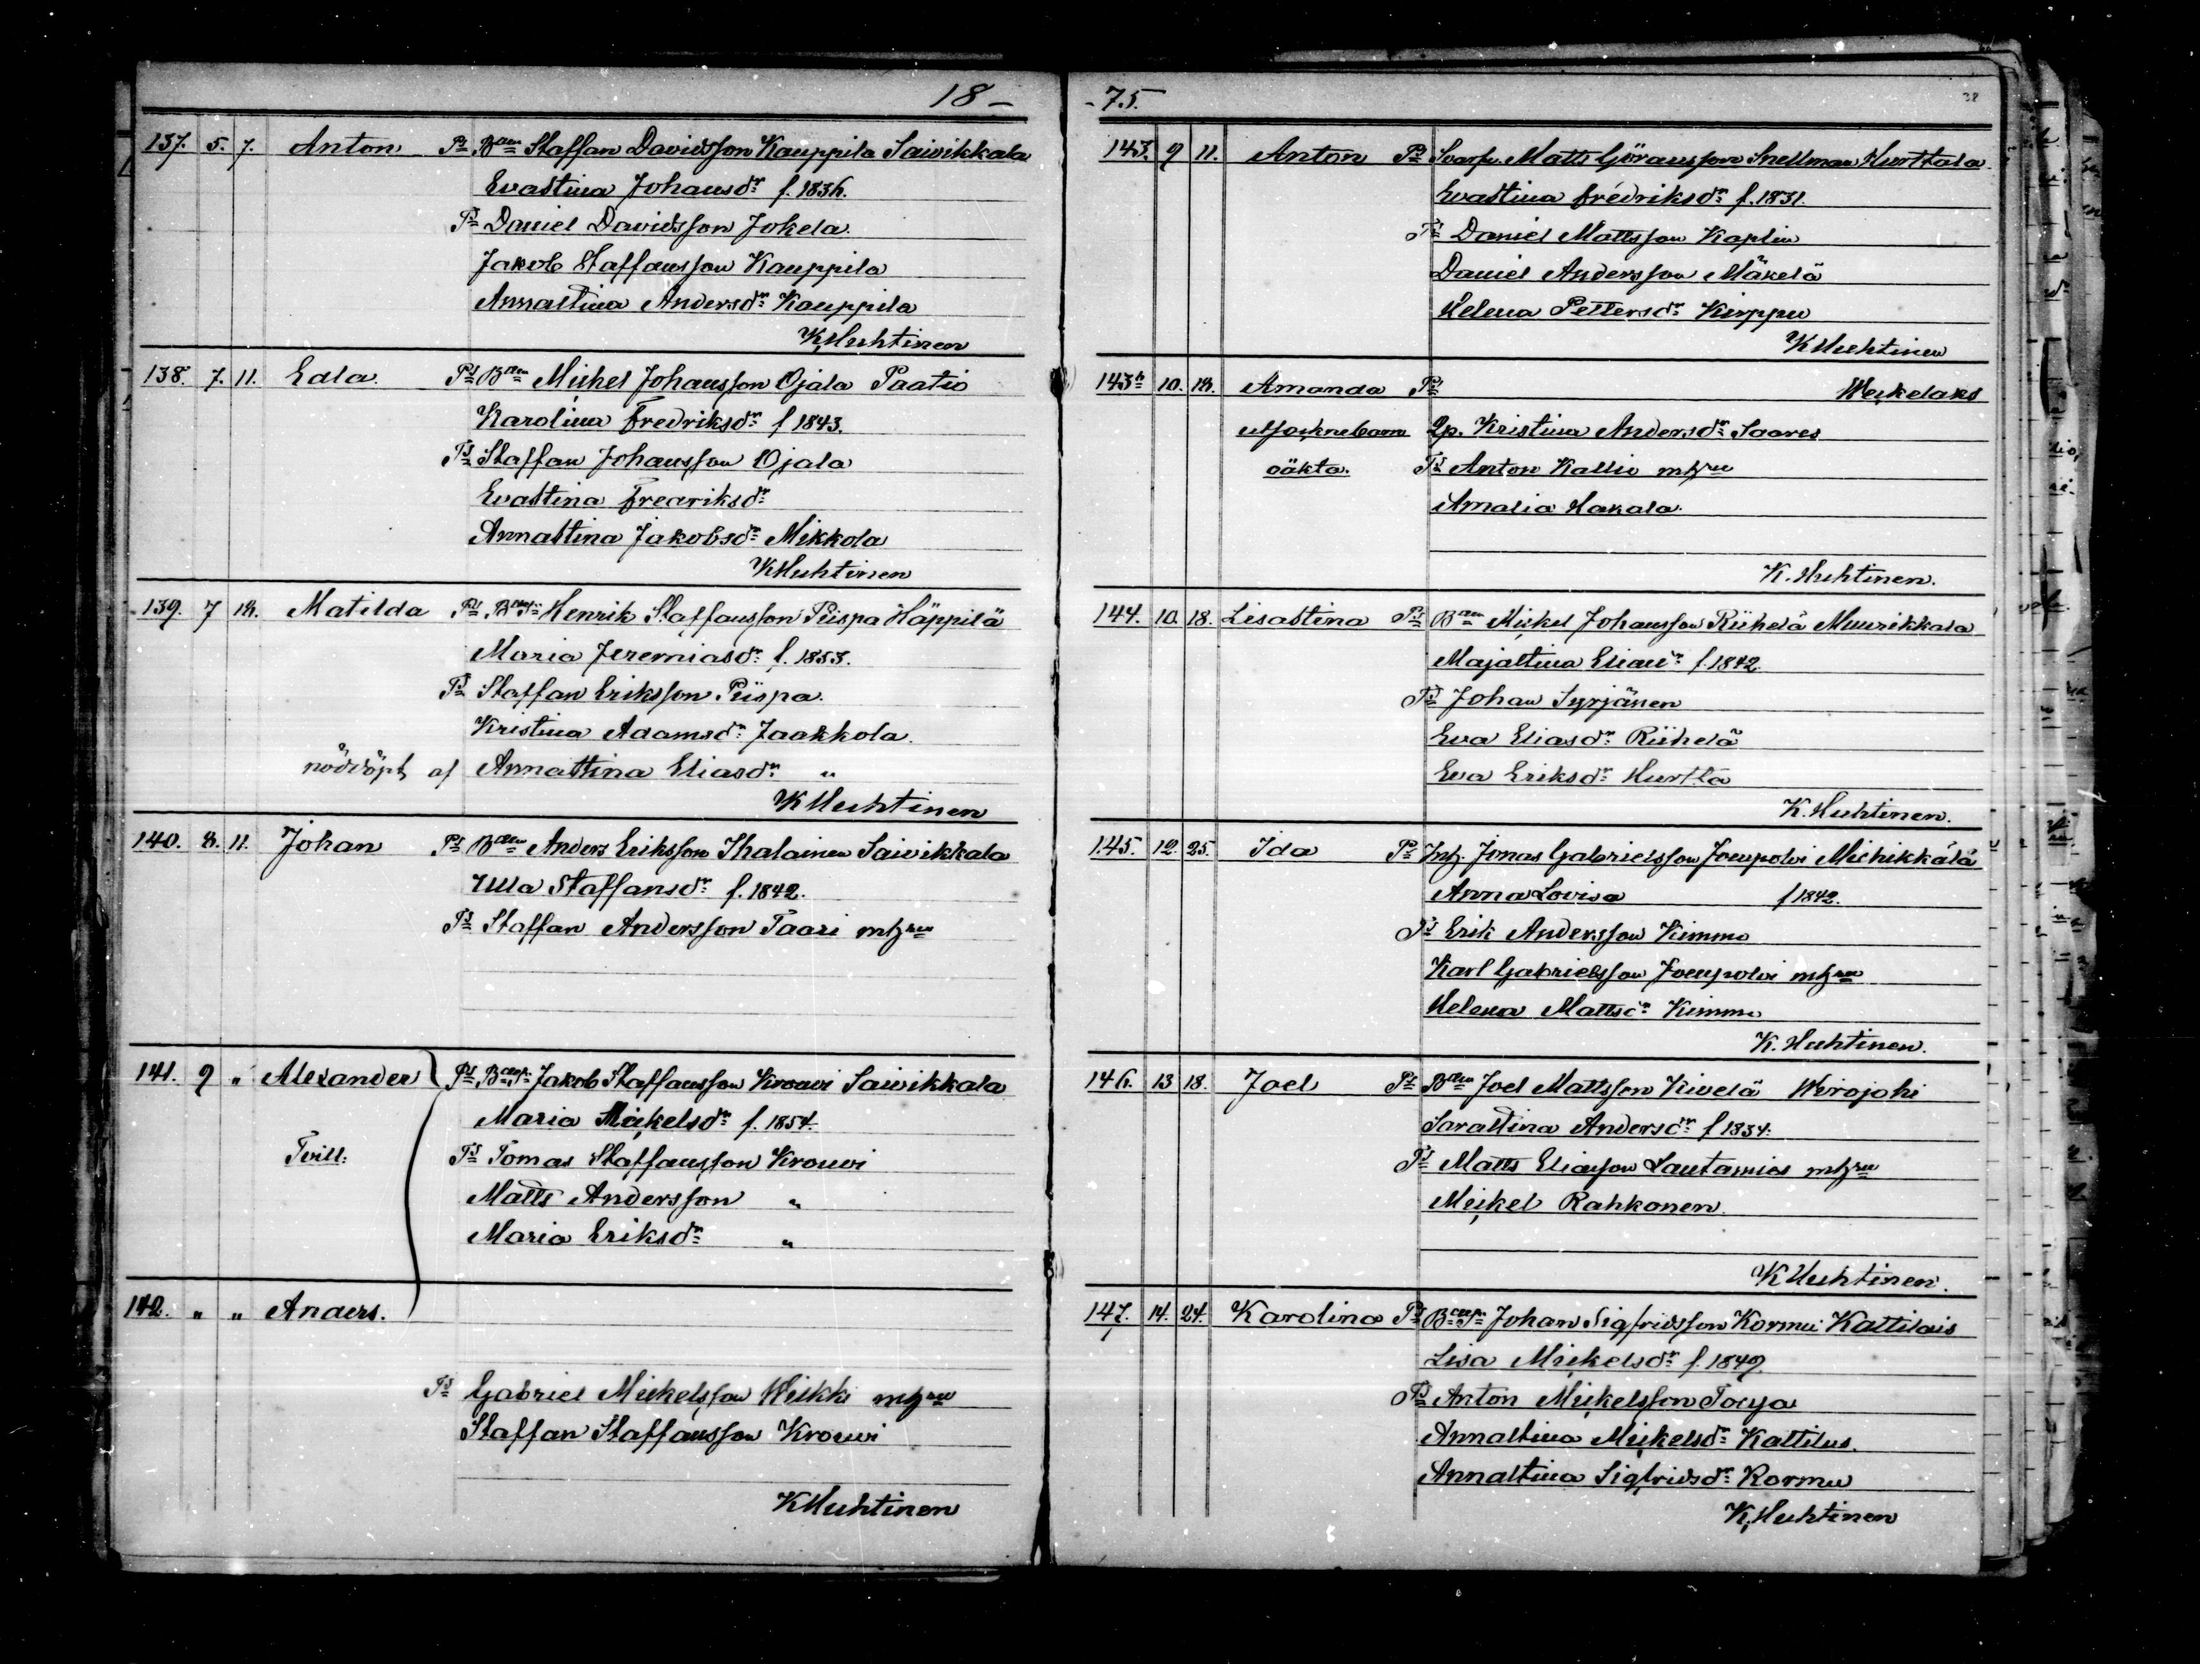 18-
137. 5. 7. Anton Ps Bdn Staffan Davidsson Kauppila Saivikkala
Evastina Johansdr f. 1836.
Ts Daniel Davidsson Jokela.
Jakob Staffansson Kauppila
Annastina Andersdr Kauppila
K Huhtinen
138. 7. 11. Edla. Ps Bdn Mickel Johansson Ojala Paatio
Karolina Fredriksdr f 1843.
Ts Staffan Johansson Ojala
Evastina Fredriksdr
Annastina Jakobsdr Mikkola
K Huhtinen
139. 7 Matilda Ps Henrik Staffansson Piispa Häppilä
Maria Jeremiasdr f. 1853.
Ts Staffan Eriksson Piispa.
Kristina Adamsdr Jaakkola.
nöddöpt af Annastina Eliasdr "
K Huhtinen
140. 8. 11. Johan Ps Bdn Anders Eriksson Ihalainen Saivikkala
Ulla Staffansdr f. 1842.
Ts Staffan Andersson Taari
141. 9 " Alexander Ps Jakob Staffansson Krouvi Saivikkala
Maria Mickelsdr f. 1854.
Tvill: Ts Tomas Staffansson Krouvi
Matts Andersson "
Maria Eriksdr "
142. " " Anders.
Ts Gabriel Mickelsson Weikki
Staffan Staffansson Krouvi
K Huhtinen
-75.
38
143. 9 11. Anton Ps Matts Göransson Snellman Hurttala
Evastina Fredriksdr f. 1831.
Ts Daniel Mattsson Kaplin
Daniel Andersson Mäkelä
Helena Pettersdr Kirppu
K Huhtinen
143 10. Amanda Ps Weckelaks
Qp. Kristina Andersdr Saares
oäkta. Ts Anton Kallio
Amalia Hakala.
K. Huhtinen.
144. 10. 18. Lisastina Ps Bdn Mickel Johansson Riihelä Muurikkala
Majastina f. 1842
Ts Johan Syrjänen
Eva Eliasdr Riihelä
Eva Eriksdr Hurtta
K. Huhtinen.
145. 12. 25. Ida Ps Inh. Jonas Gabrielsson Joenpolvi Miehikkälä
Anna Lovisa f 1842.
Ts Erik Andersson Kimmo
Karl Gabrielsson Joenpolvi
Helena Mattsdr Kimmo
K. Huhtinen.
146. 13 18. Joel Ps Bdn Joel Mattsson Kivelä Wirojoki
Sarastina Andersdr f 1834.
Ts Matts Eliasson Lautamies
Mickel Rahkonen
K Huhtinen.
147. 14. 24. Karolina Ps Johan Sigfridsson Kormu Kattilais
Lisa Mickelsdr f. 1849.
Ts Anton Mickelsson
Annastina Mickelsdr Kattilus.
Annastina Sigfridsdr Kormu
K, Huhtinen